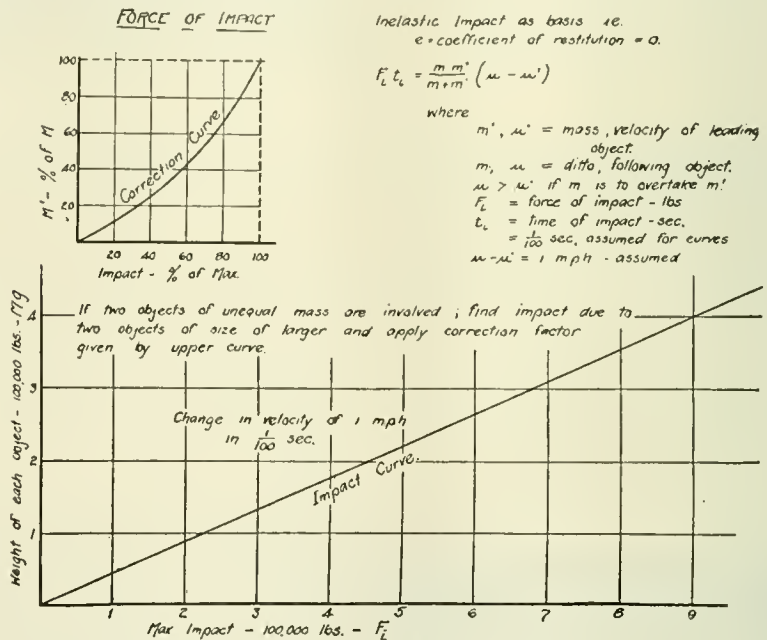 FORCE OF IMPACT
100
80
60
40
20
M' - % of M
Correction Curve
20 40 60 80 100
Impact - % of Max.
Inelastic Impact as basis i.e.
e = coefficient of restitution = 0.
F_i t_i = m m' / m + m' (u - u')
where
m', u' = mass, velocity of leading
object.
m, u = ditto, following object.
u > u' if m is to overtake m'.
F_i = force of impact - lbs
t_i = time of impact - sec.
= 1/100 sec, assumed for curves
u - u' = 1 mph - assumed
If two objects of unequal mass are involved ; find impact due to
two objects of size of larger and apply correction factor
given by upper curve.
Change in velocity of 1 mph
in 1/100 sec.
Impact Curve.
Weight of each object - 100,000 lbs. - Mg
4
3
2
1
1 2 3 4 5 6 7 8 9
Max Impact - 100,000 lbs. - F_i